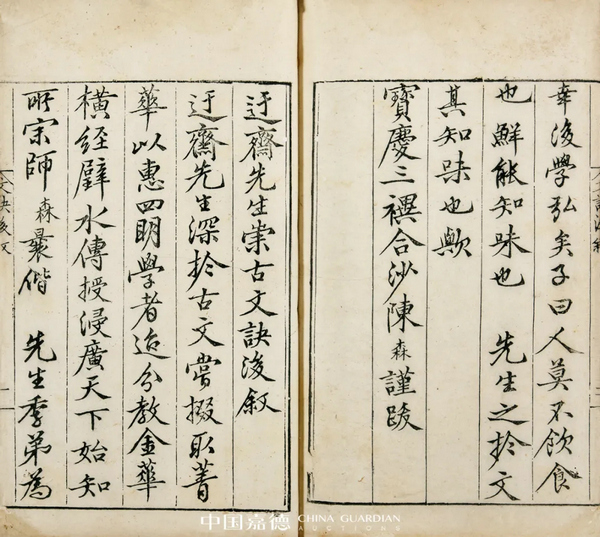 幸後學弘矣子曰人莫不飲食
也鮮能知味也 先生之扵文
其知味也歟
寶慶三禩合沙陳森謹跋
迂齋先生崇古文訣後敘
迂齋先生深扵古文嘗掇取菁
華以惠四明學者迨分教金華
橫經璧水傳授浸廣天下始知
所宗師森曩偕 先生季弟為
中国嘉德 CHINA GUARDIAN
AUCTIONS